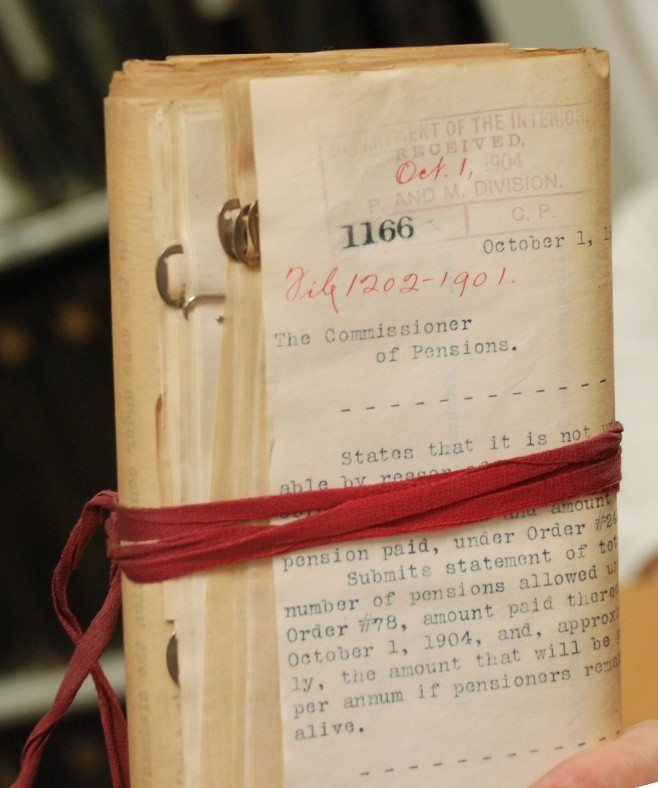 DEPARTMENT OF THE INTERIOR,
RECEIVED,
Oct. 1, 1904
P. AND M. DIVISION.
1166
C. P.
October 1, 1
File 1202-1901.
The Commissioner
of Pensions.
- - - - - - - - - - - -
States that it is not
able by reason of
and amount
pension paid, under Order #2
Submits statement of tot
number of pensions allowed u
Order #78, amount paid there
October 1, 1904, and, approxi
ly, the amount that will be
per annum if pensioners rema
alive.
- - - - - - - - - - - -